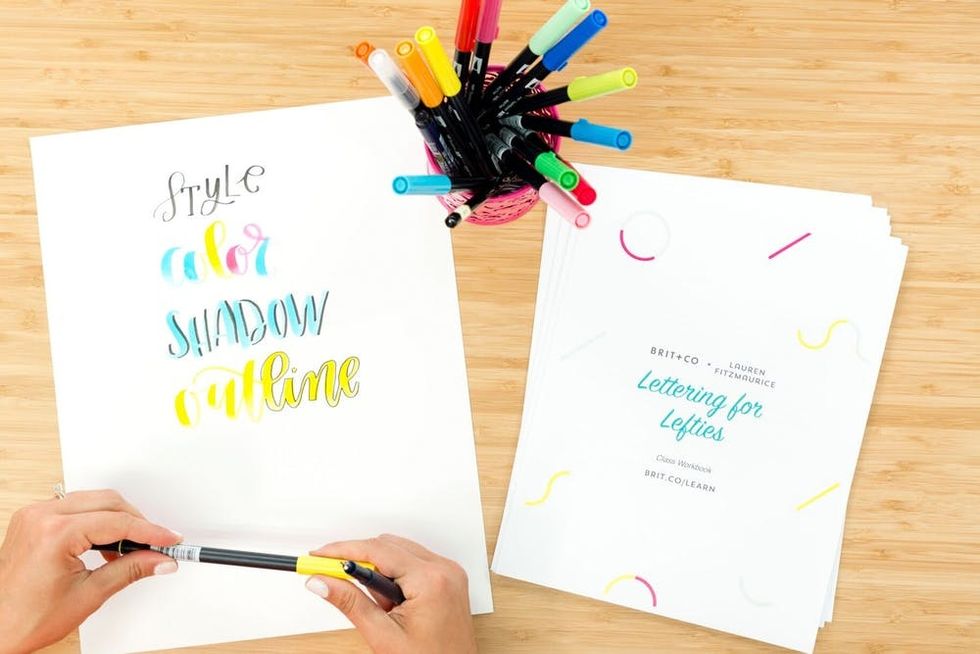 STYLE
color
SHADOW
outline
BRIT+CO • LAUREN
FITZMAURICE
Lettering for
Lefties
Class Workbook
BRIT.CO/LEARN